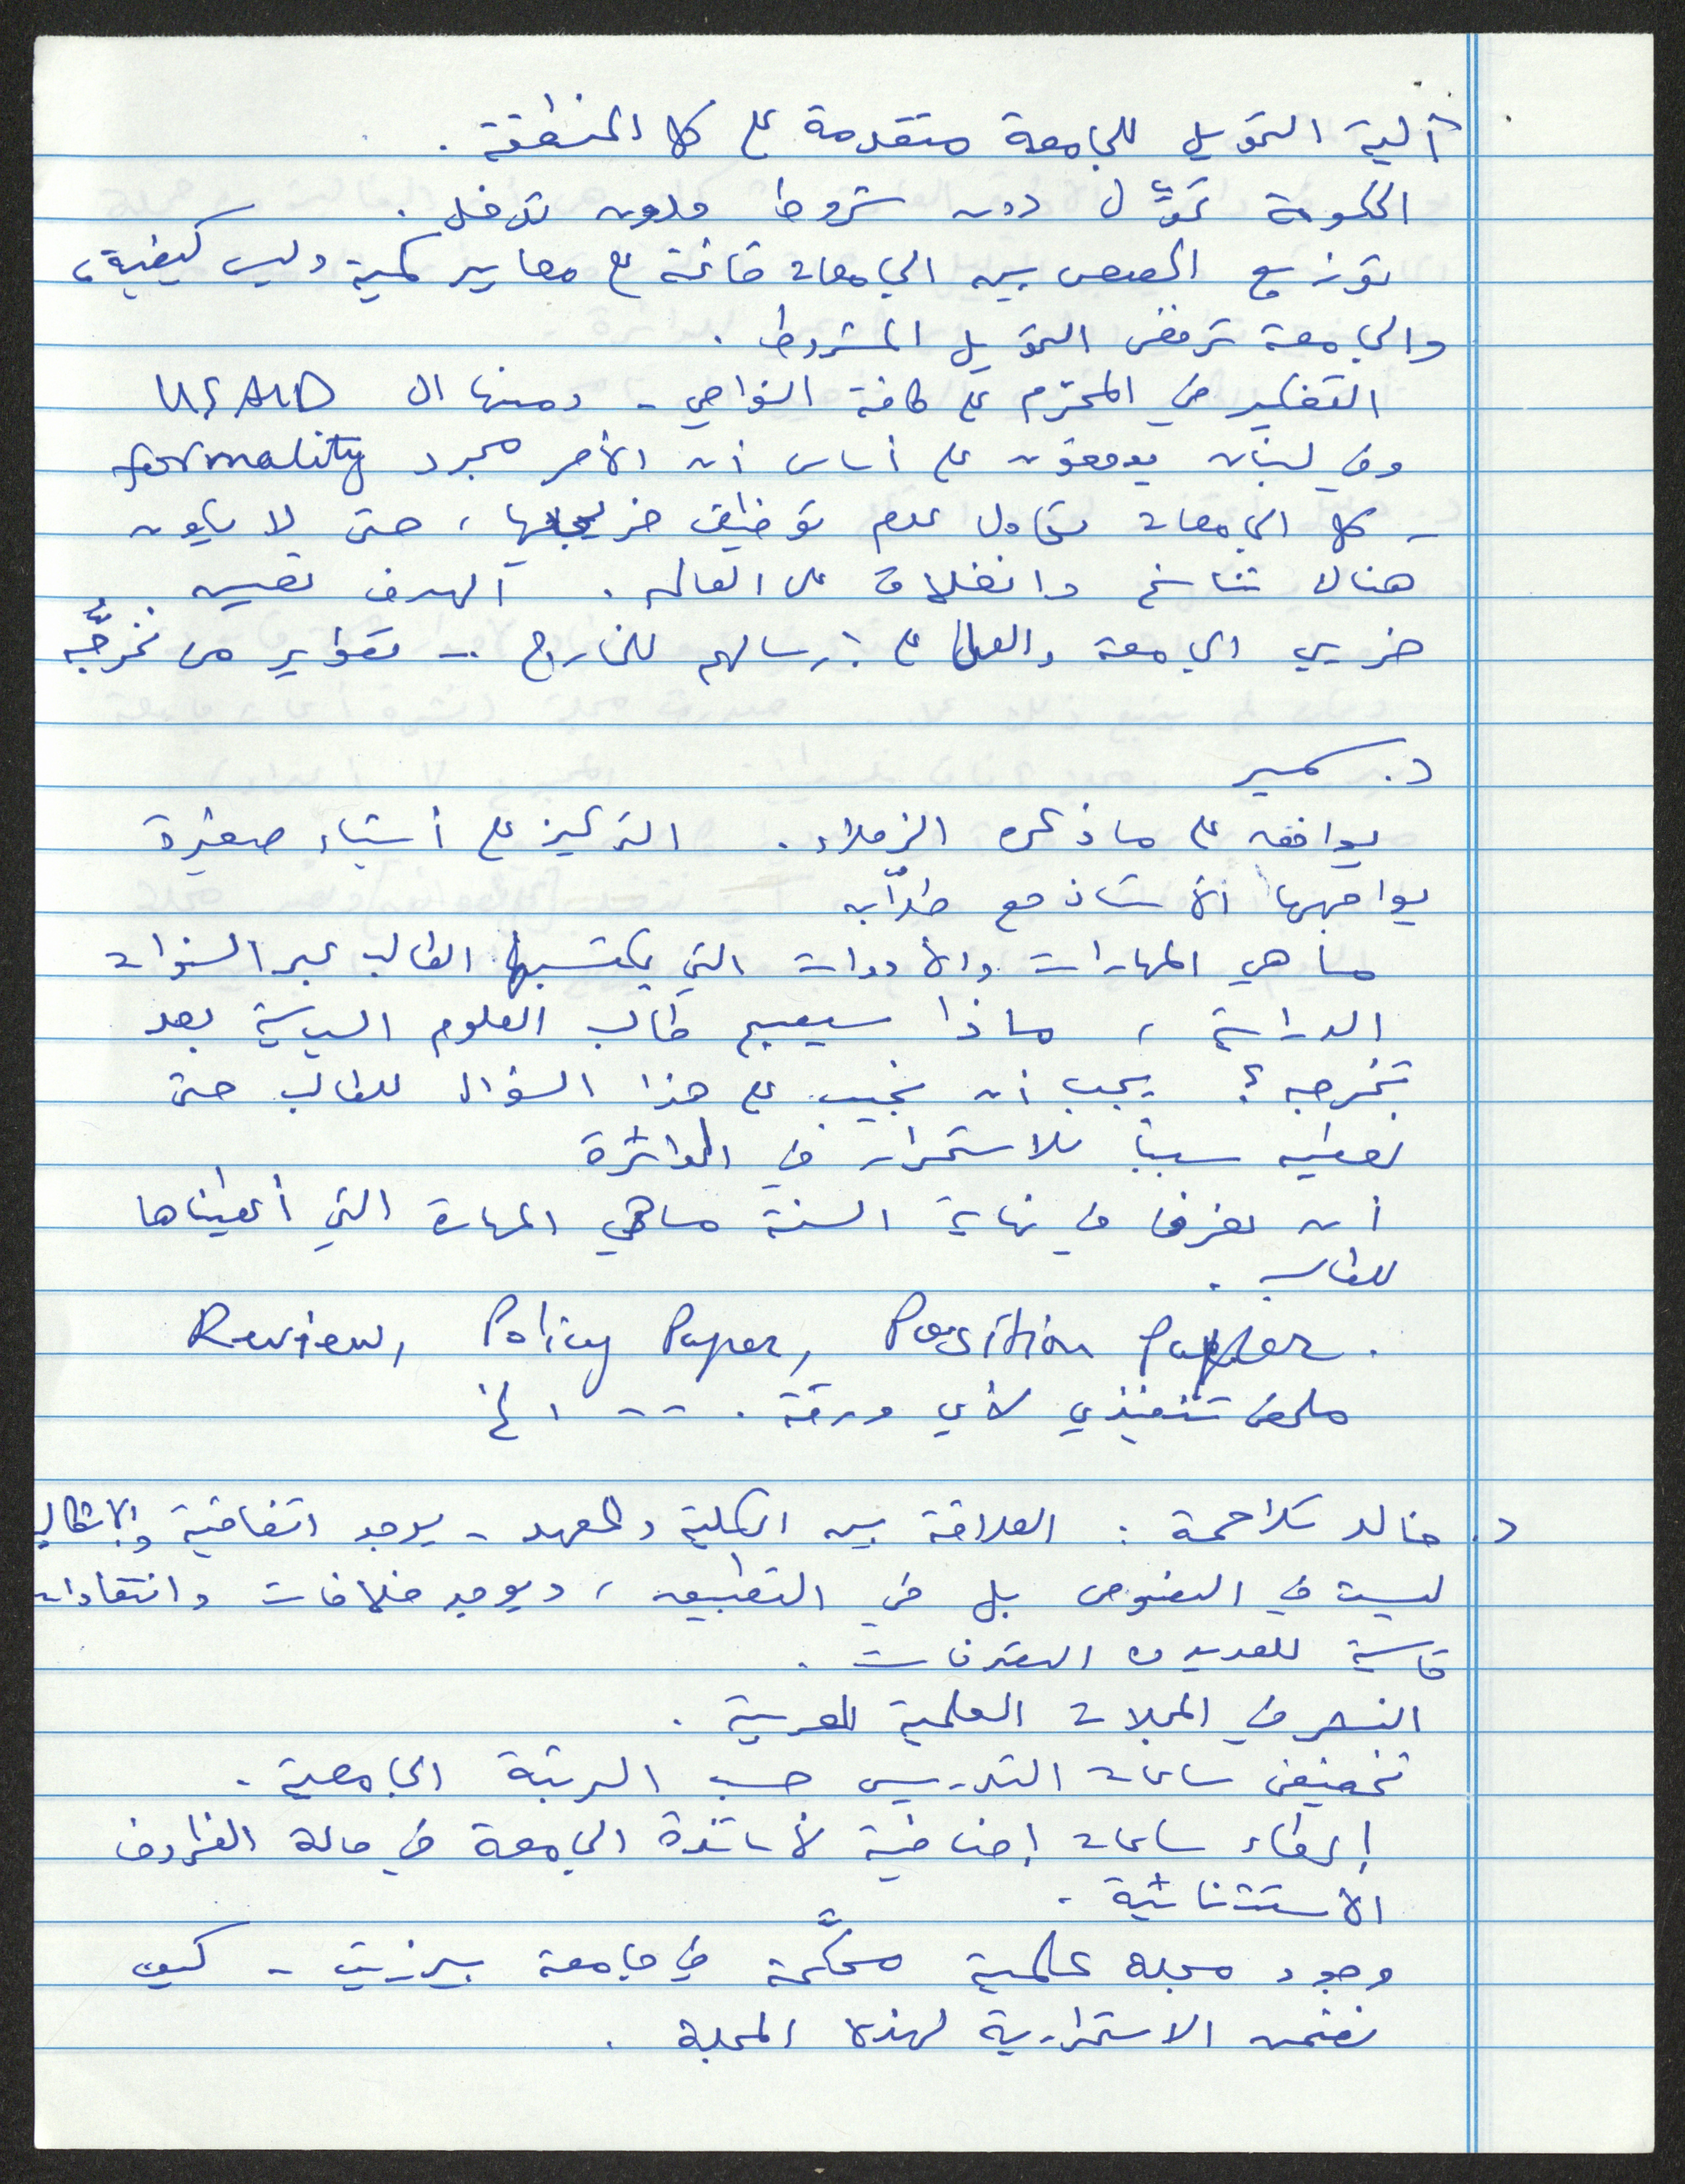 آلية التمويل للجامعة متقدمة على كل المنطقة .
الحكومة تموّل دون شروط وبدون تدخل .
توزيع الحصص بين الجامعات قائمة على معايير كمية وليس كيفية،
والجامعة ترفض التمويل المشروط .
التفكير في المحترم على كافة النواحي - ومنها ال USAID
وفي لبنان يوقعون على أساس أن الأمر مجرد formality
- كل الجامعات تحاول عدم توظيف خريجيها ، حتى لا يكون
هناك تناسخ وانغلاق على العالم . الهدف تعيين
خريجي الجامعة والعمل على إرسالهم للخارج .. تقوير من تخرجّه
د. سمير
يوافق على ما ذكره الزملاء . التركيز على أشياء صغيرة
يواجهها الأستاذ مع طلّابه
ما هي المهارات والأدوات التي يكتسبها الطالب عبر السنوات
الدراسية ، ماذا سيصبح طالب العلوم السياسية بعد
تخرجه ؟ يجب أن نجيب على هذا السؤال للطالب حتى
نعطيه سبباً للاستمرار في الدائرة
أن نعرف في نهاية السنة ما هي المهارة التي أعطيناها
للطالب .
Review, Policy Paper, Position Paper.
ملخص تنفيذي لأي ورقة . - - ، الخ
د. خالد تلاحمة : العلاقة بين الكلية والمعهد - يوجد اتفاقية والإشكالية
ليست في النصوص بل في التطبيق ، ويوجد خلافات وانتقادات
قاسية للعديد من التصرفات .
النشر في المجلات العلمية العربية .
تخفيض ساعات التدريس حسب الرتبة الجامعية .
إعطاء ساعات إضافية لأساتذة الجامعة في حالة الظروف
الاستثنائية .
وجود مجلة علمية محكّمة في جامعة بيرزيت - كيف
نضمن الاستمرارية لهذه المجلة .